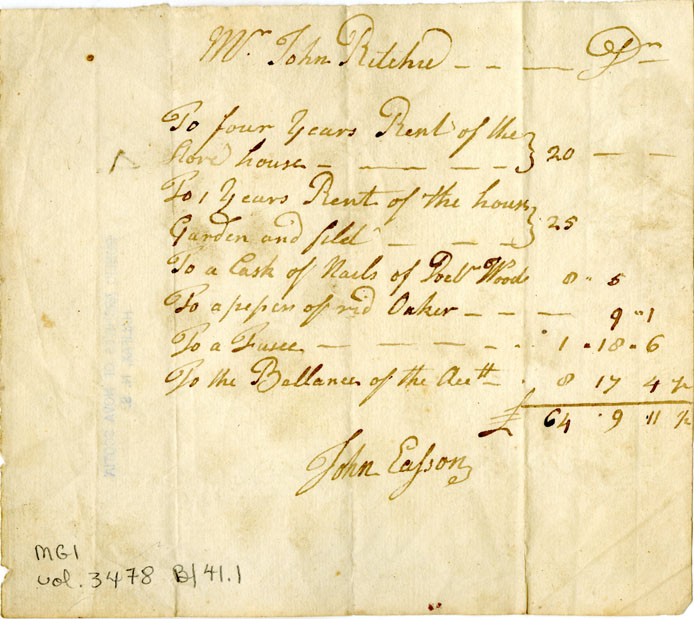 Mr John Ritchie — — — Dr
To four Years Rent of the
Store house — — — — — } 20 — —
To 1 Years Rent of the house
Garden and field — — — } 25
To a Cask of Nails of Wood 8 " 5
To a of rid Oaker — — — — 9 " 1
To a Fusee — — — — — 1 " 18 " 6
To the Ballance of the Acctt. 8 17 4 ½
£ 64 " 9 11 ½
John Easson
MG1
vol. 3478 B/41.1
PUBLIC ARCHIVES OF NOVA SCOTIA
HALIFAX, N. S.